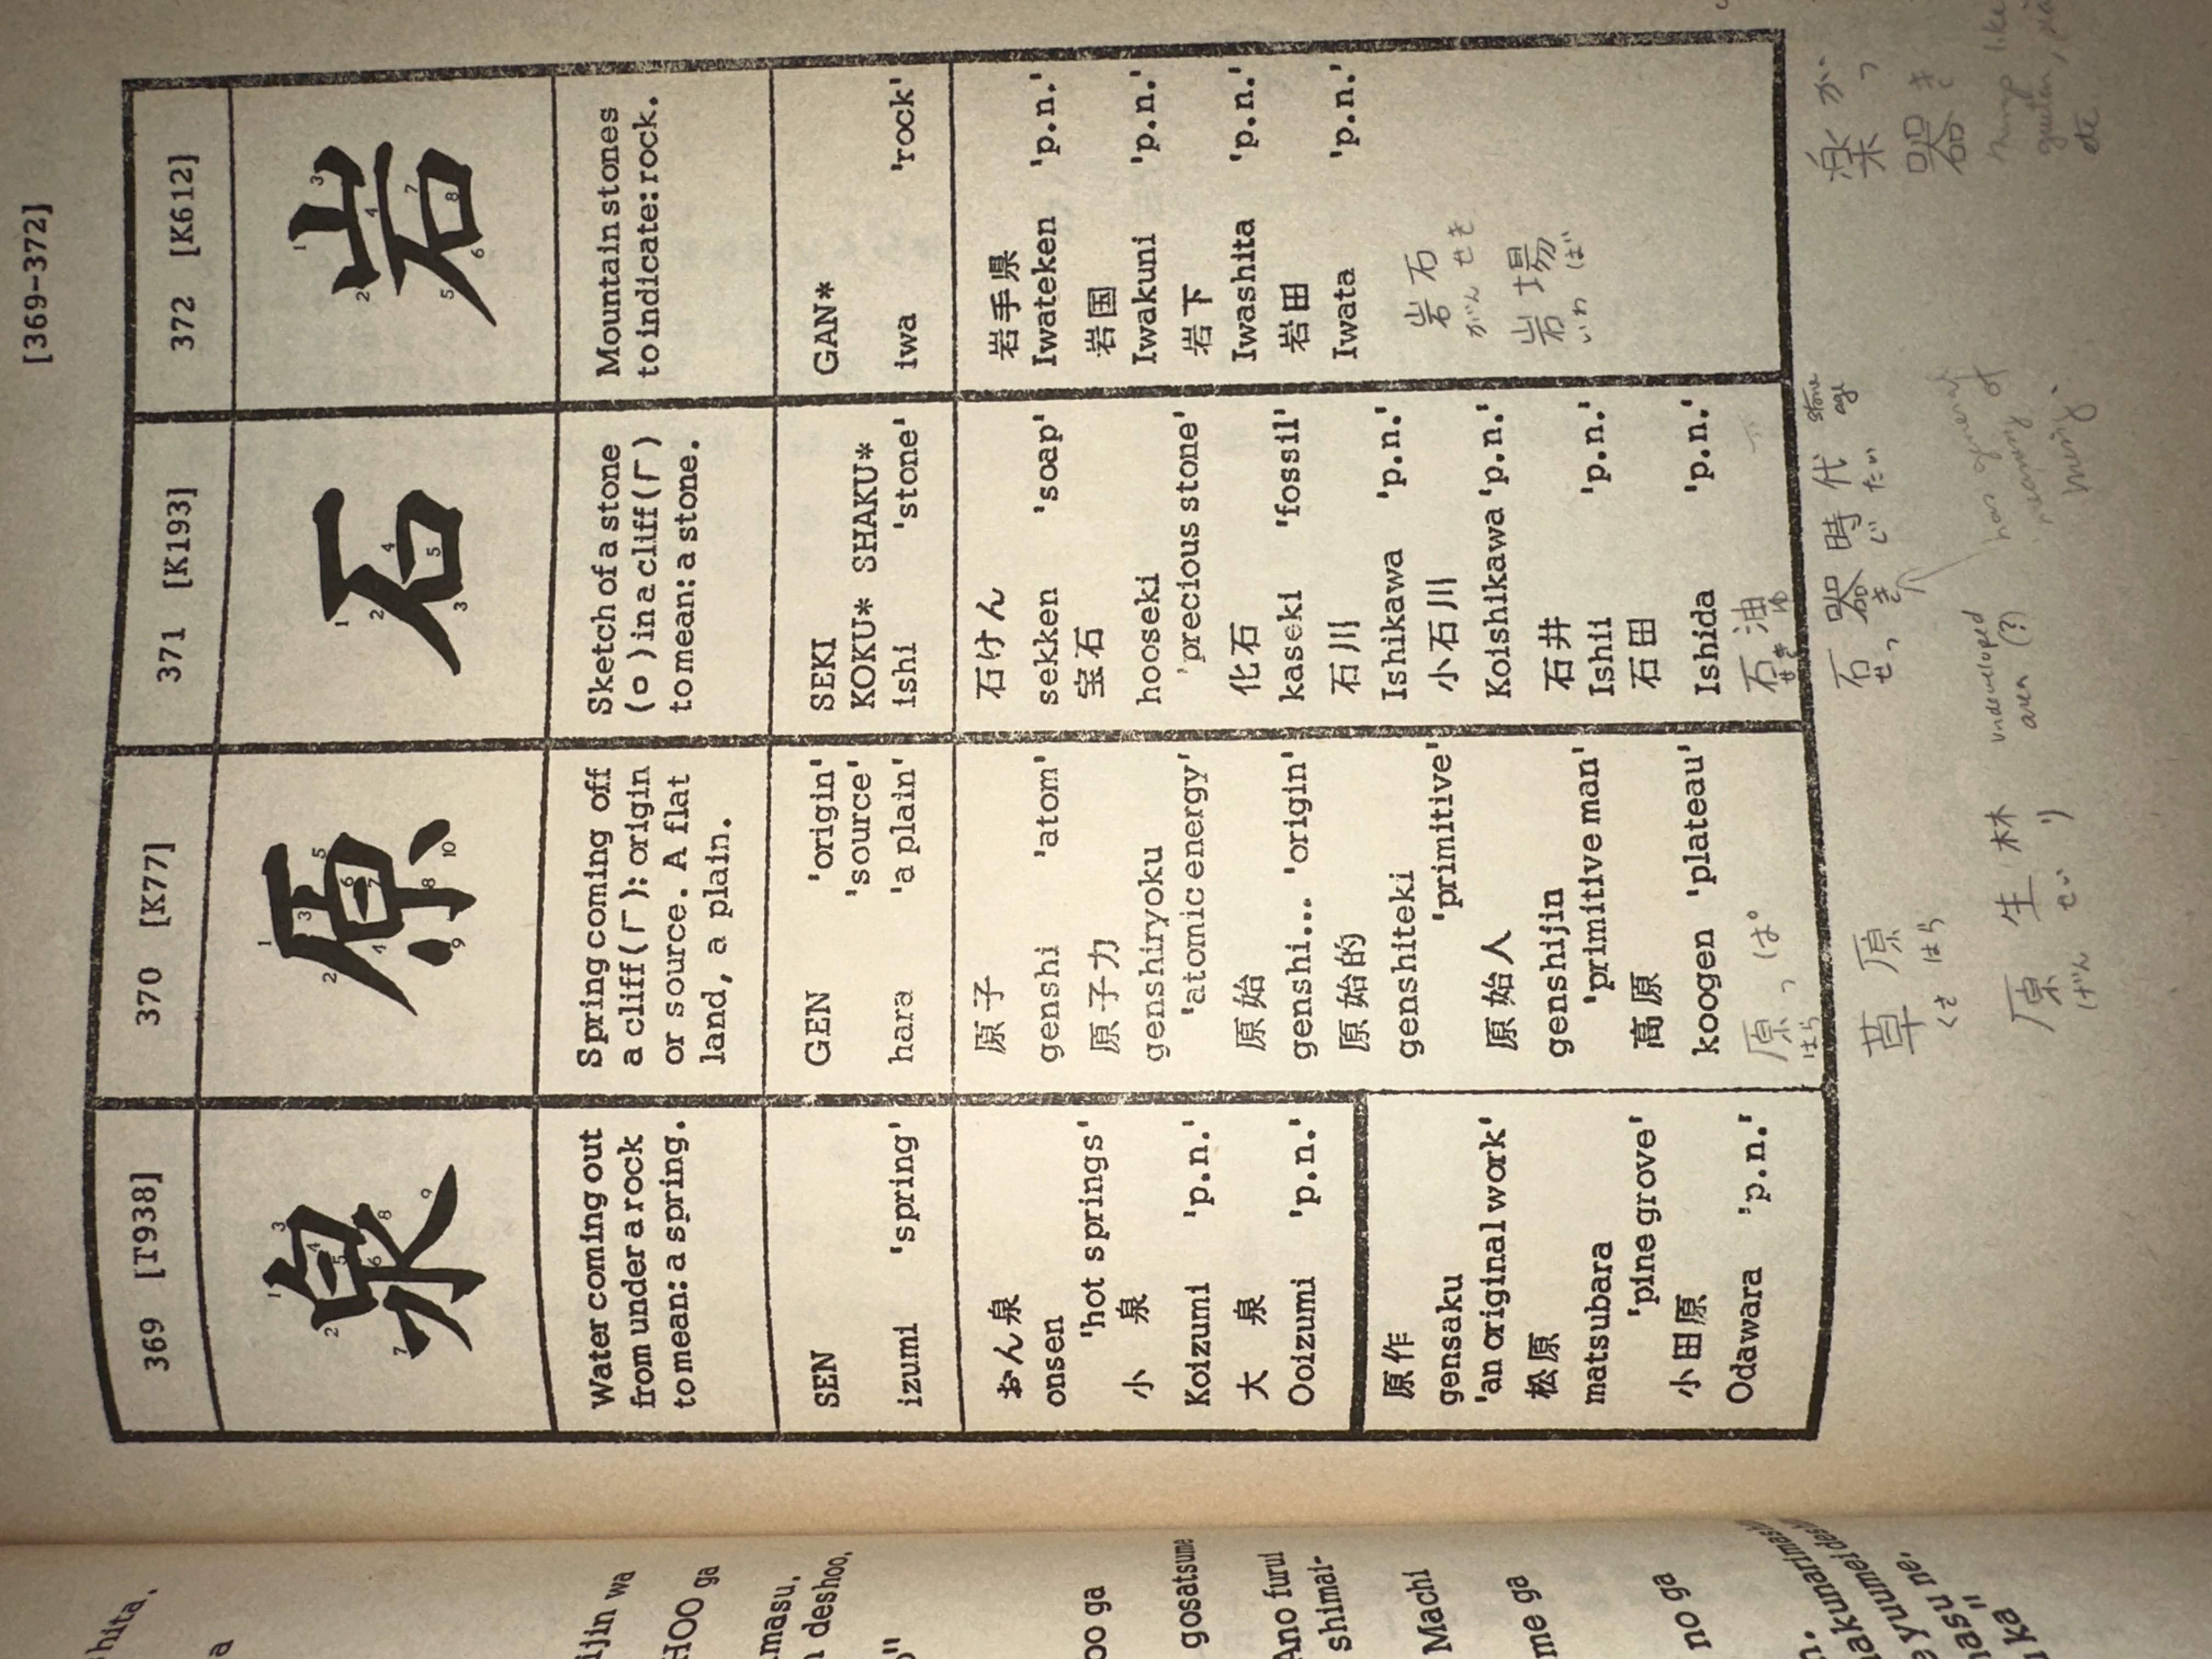 [369-372]
369 [T938]
泉
Water coming out
from under a rock
to mean: a spring.
SEN
izumi 'spring'
おん泉
onsen
'hot springs'
小 泉
Koizumi 'p.n.'
大 泉
Ooizumi 'p.n.'
370 [K77]
原
Spring coming off
a cliff(厂): origin
or source. A flat
land, a plain.
GEN 'origin'
'source'
hara 'a plain'
原子
genshi 'atom'
原子力
genshiryoku
'atomic energy'
原始
genshi... 'origin'
原始的
genshiteki
'primitive'
原始人
genshijin
'primitive man'
高原
koogen 'plateau'
原っぱ
はら
原作
gensaku
'an original work'
松原
matsubara
'pine grove'
小田原
Odawara 'p.n.'
371 [K193]
石
Sketch of a stone
(o) in a cliff(厂)
to mean: a stone.
SEKI
KOKU* SHAKU*
ishi 'stone'
石けん
sekken 'soap'
宝石
hooseki
'precious stone'
化石
kaseki 'fossil'
石川
Ishikawa 'p.n.'
小石川
Koishikawa 'p.n.'
石井
Ishii 'p.n.'
石田
Ishida 'p.n.'
石油
せき ゆ
372 [K612]
岩
Mountain stones
to indicate: rock.
GAN*
iwa 'rock'
岩手県
Iwateken 'p.n.'
岩国
Iwakuni 'p.n.'
岩下
Iwashita 'p.n.'
岩田
Iwata 'p.n.'
岩石
がん せき
岩場
いわ ば
草原
くさ はら
原生林
げん せい り
undeveloped
area (?)
石器時代 stone age
せっ き じ だい
has general
meaning of
thing
楽 がっ
器 き
like
etc
hita,
a
ijin wa
HOO ga
masu.
deshoo,
oo ga
gosatsume
Ano furui
shimai-
Machi
me ga
no ga
yuumei desu
masu ne.
ka